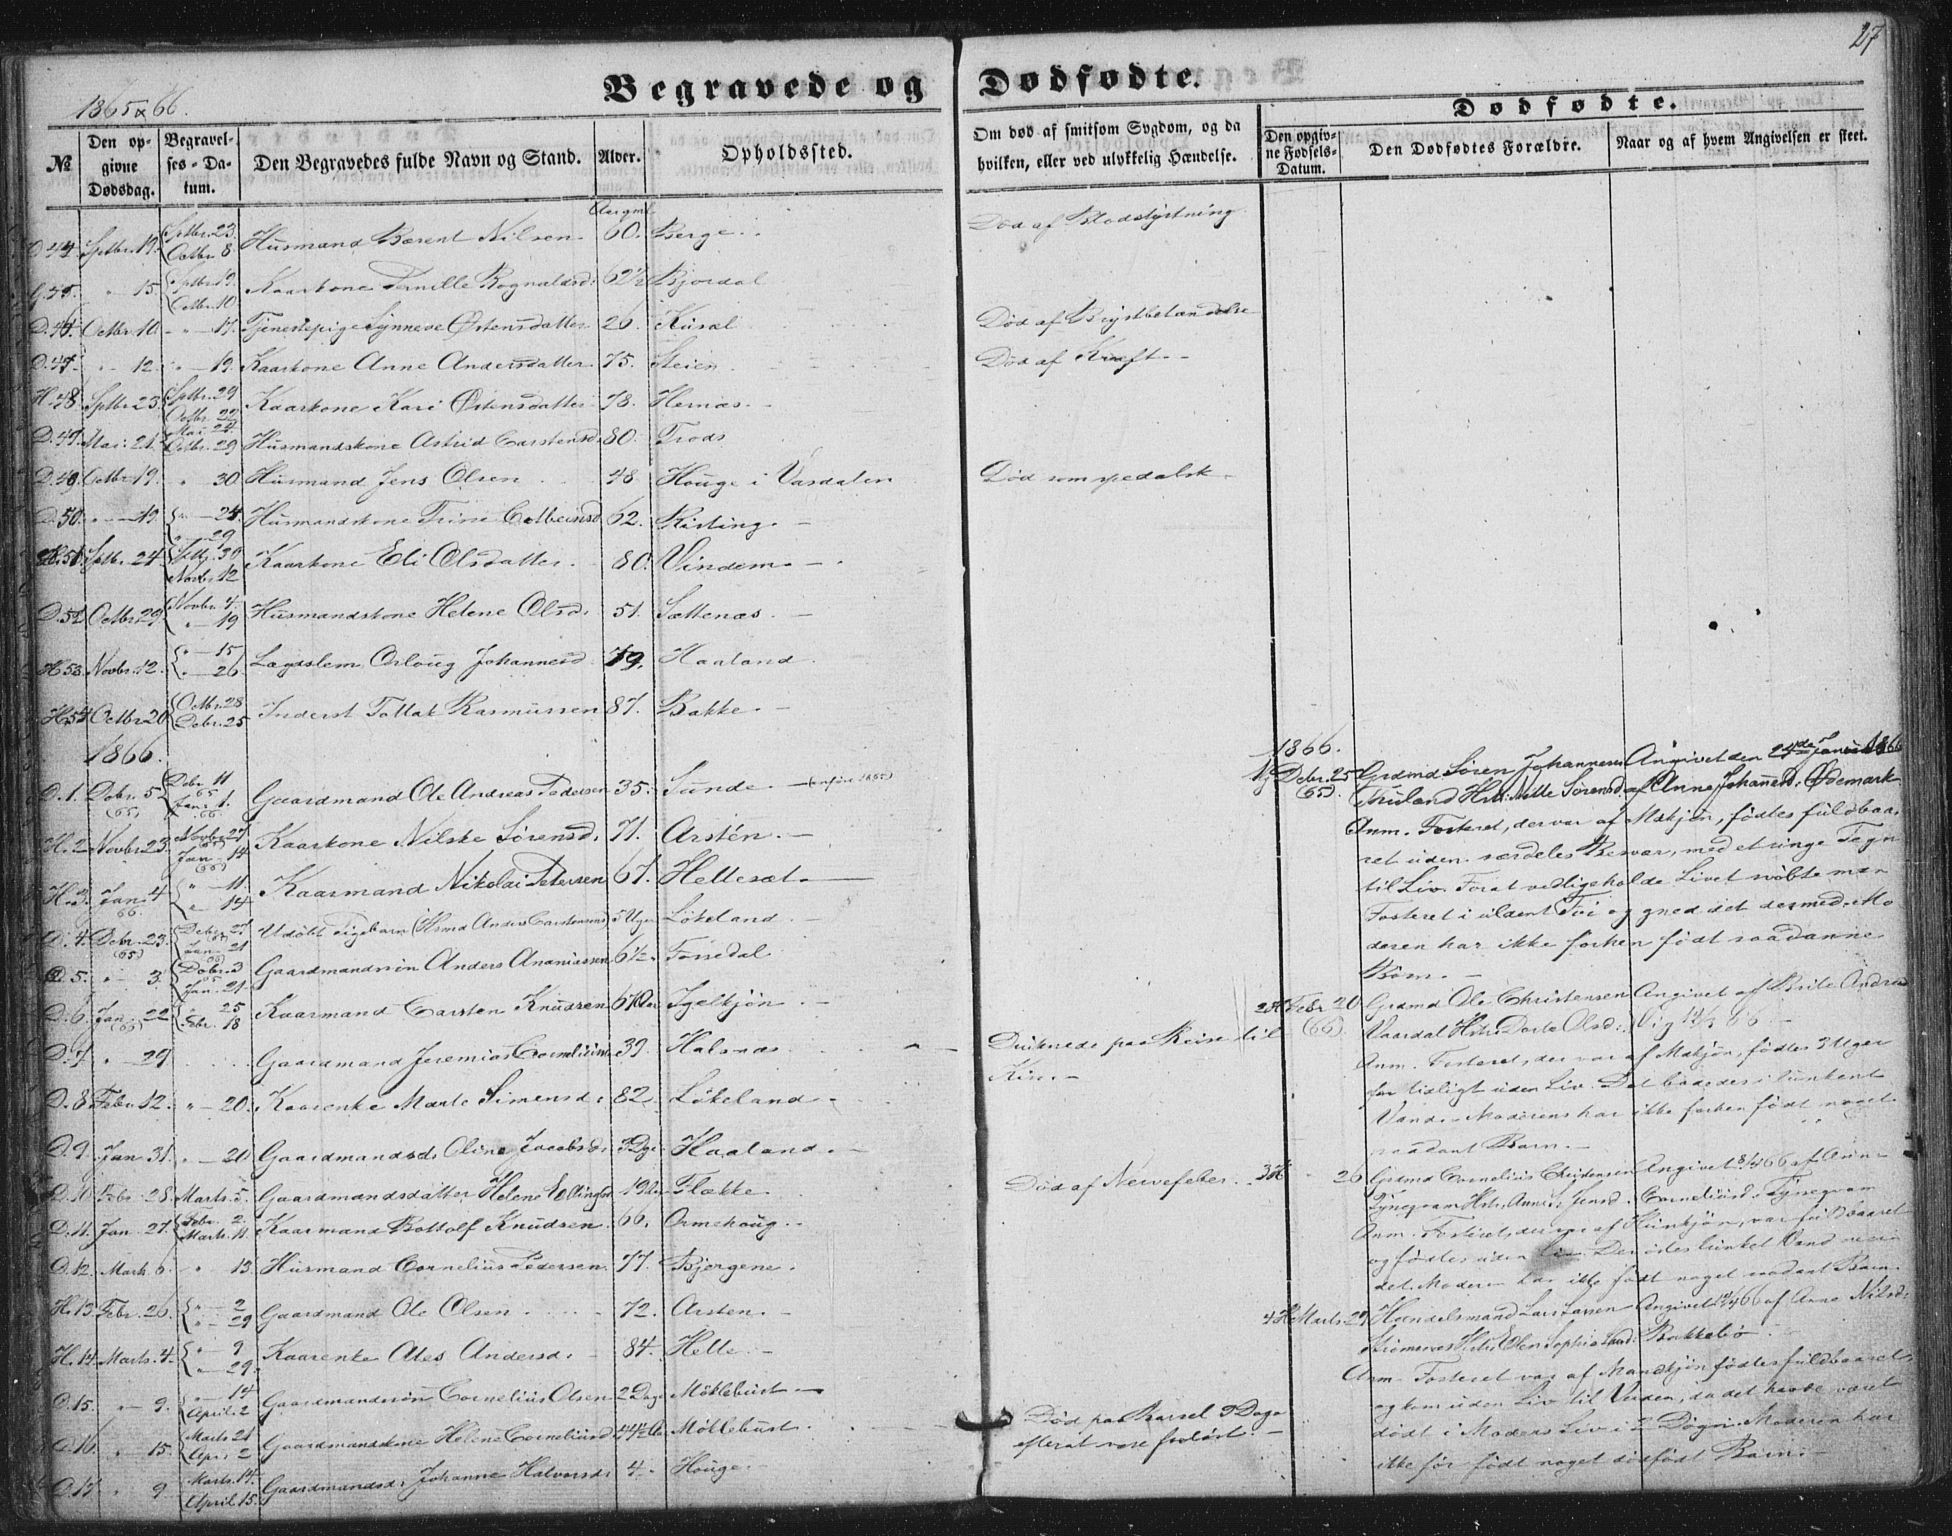 27
Begravede og Dødfødte.
1865 & 66.
Dødfødte.
№
Den opgivne Dødsdag.
Begravelses-Datum.
Den Begravedes fulde Navn og Stand.
Alder.
Opholdssted.
Om død af smitsom Sygdom, og da hvilken, eller ved ulykkelig Hændelse.
Den opgivne Fødsels-Datum.
Den Dødfødtes Forældre.
Naar og af hvem Angivelsen er skeet.
D. 44 Septbr. 19. Septbr. 23. Octbr. 8 Husmand Berent Nilsen 60. Berge. Død af Blodstyrtning
45. " 15. Septbr. 19. Octbr. 10 Kaarkone Pernille Rognaldsd: 62½ Bjordal
D. 46. Octbr. 10. " 17. Tjenestepige Synneve Østensdatter 26. Død af Brystbetændelse
D. 47. " 12. " 19. Kaarkone Anne Andersdatter 75. Steien Død af Kræft.
H. 48. Septbr. 23. Septbr. 29 Octbr. 22 Kaarkone Kari Østensdatter 78. Hernæs.
D. 49. Mai. 21. Mai. 24. Octbr. 29 Husmandskone Astrid Carstensd. 80. Trods
D. Octbr. 19. " 30 Husmand Jens Olsen 48 Houge i Vasdalen Død som spedalsk.
D. 50. " 19. " 24. " 29 Husmandskone 62. Risting.
H. 51. Septbr. 24. Septbr. 30 Novbr. 12 Kaarkone Eli Olsdatter 80. Vindem.
D. 52 Octbr. 29 Novbr. 4. " 19 Husmandskone Helene Olsd: 51. Sættenæs.
H. 53. Novbr. 12. " 15 " 26 Lægslem Orloug Johannesd. 79. Haaland
H. 54 Octbr. 20 Octbr. 28 Decbr. 25 Inderst Tollak Rasmussen 87. Bakke.
1866.
D. 1. Decbr. 5 (65) Decbr. 11 65 Jan. 1. 66. Gaardmand Ole Andreas Pedersen 35. Sunde.
H. 2. Novbr. 23. Novbr. 27 (65) Jan. 14 (66) Kaarkone Nilske Sørensd. 71. Arstén.
H. 3. Jan. 4 66. " 11. " 14 Kaarmand Nikolai Petersen 67. Hellesæt.
D. 4. Decbr. 23. (65) Decbr. 27 Jan. 21 Udøbt Pigebarn (Hsmd Anders Carstensens) 5 Uger Løkeland.
D. 5. " 3. Decbr. 3 Jan. 21 Gaardmandssøn Anders Ananiassen 6½. Førsdal
D. 6. Jan. 22 " 25 Febr. 18 Kaarmand Carsten Knudsen 67 Aar Igelkjøn.
D. 7. " 29 Gaardmand Jeremias Corneliusen 39. Halsnæs Druknede paa Reise til Kinn.
D. 8. Febr. 12. " 20. Kaarenke Marte Simensd: 82. Løkeland.
D. 9. Jan 31. " 20 Gaardmandsd. Oline Jacobsd: Dge Haaland.
D. 10. Febr. 28. Marts. 5. Gaardmandsdatter Helene Ellingsd. 19 Flække. Død af Nervefeber.
D. 11. Jan 27. Febr. 2. Marts. 11. Kaarmand Bottolf Knudsen. 66. Ormehoug.
D. 12. Marts 6. " 13. Husmand Cornelius Pedersen. 77. Bjergene.
H. 13. Febr. 26. " 2 " 29 Gaardmand Ole Olsen 72. Arsten.
H. 14. Marts. 4. " 9 " 29. Kaarenke Ales Andersd. 84. Helle.
D. 15. " 9. " 14 April. 2 Gaardmandssøn Cornelius Olsen 2 Dage Møklebust
D. 16. " 15. Marts 21 April 2 Gaardmandskone Helene Corneliusd 44½ Møklebust. Død paa Barsel 9 Dage efterat være forløst.
D. 17 " 9 Marts. 14. April. 15. Gaardmandsd. Johanne Halvorsd: 4. Houge.
1866.
1 Decbr. 25 (65). Grdmd Søren Johannesen Angivet den 24de Januar 1866
Hst: Mette Sørensd af Anne Johannesd: Ødemark
Anm. Fosteret, der var af Mskjøn, fødtes fuldbaa-
ret uden særdeles Besvær, med et ringe Tegn
til Liv. For at vedligeholde Livet svøbte man
Fosteret i uldent Tøi og gned det dermed. Mo
deren har ikke forhen født saadanne
Børn.
2 H Febr 20 (66). Grdmd Ole Christensen Angivet af Brite Andersd
Vaardal Hst: Dorte Olsd: Vig 66
Anm. Fosteret, der var af Mskjøn, fødtes 3 Uger
for tidligt uden Liv. Det badedes i lunkent
Vand. Moderen har ikke forhen født noget
saadant Barn.
3 H 26 Grdmd Cornelius Christensen Angivet 8/4 66 af Anne
Hst: Anne Jensd. Corneliusd.
Anm. Fosteret, der var af Kvinkjøn, var fuldbaaret
og fødtes uden Liv. Der østes lunket Vand
det. Moderen har ikke født noget saadant Barn.
4 H Marts 29 Handelsmand Lars Larsen Angivet 66 af Anne Nilsd:
Hst: Ellen Sophie Bakkebø
Anm. Fosteret var af Mandkjøn fødtes fuldbaaret,
og kom uden Liv til Verden, da det havde været
dødt i Moders Liv i 2 Døgn. Moderen har
ikke før født noget dødfødt Barn.